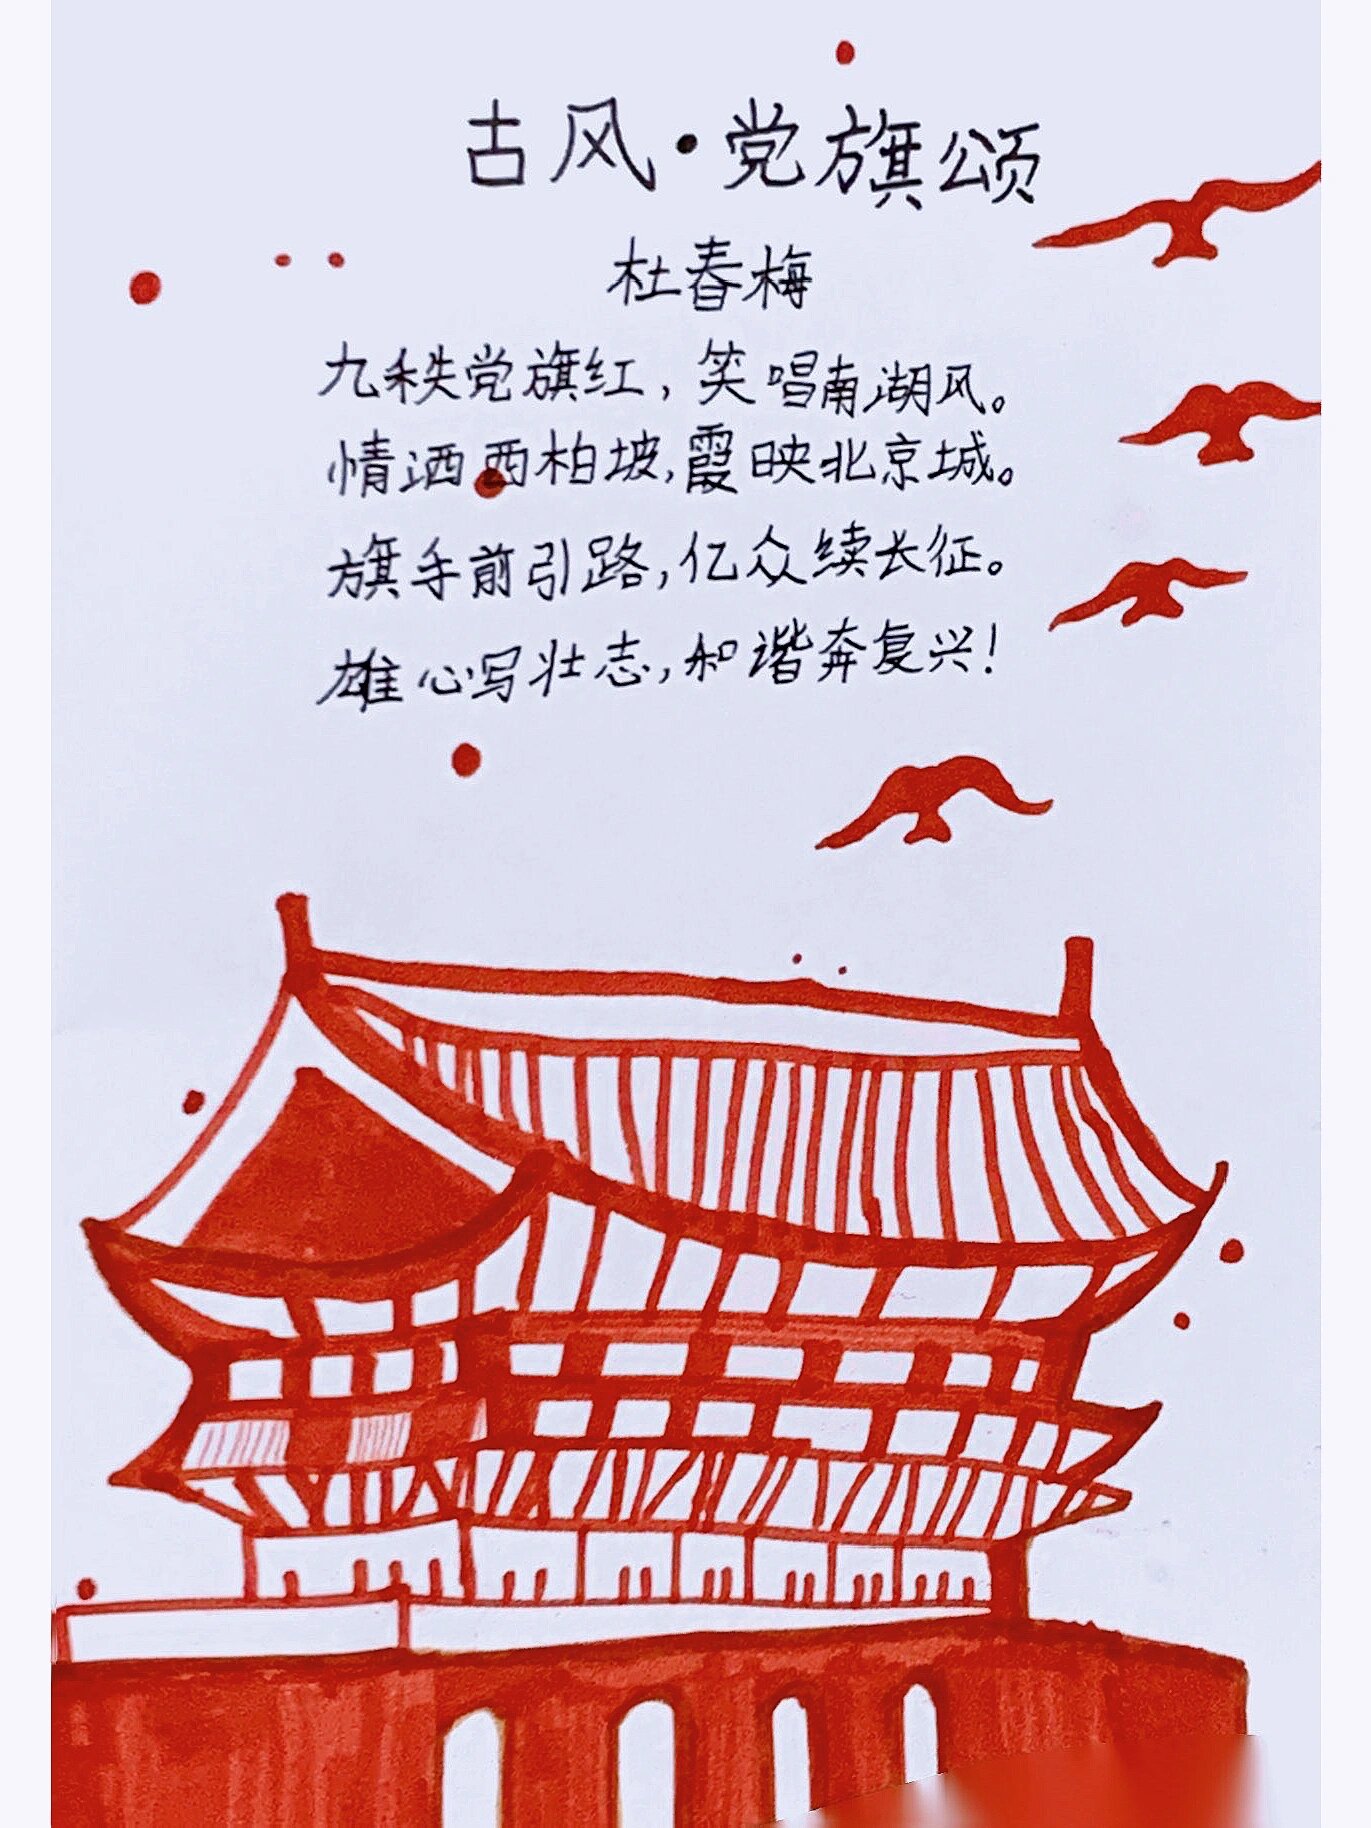 古风·党旗颂
杜春梅
九秩党旗红，笑唱南湖风。
情洒西柏坡，霞映北京城。
旗手前引路，亿众续长征。
雄心写壮志，和谐奔复兴！